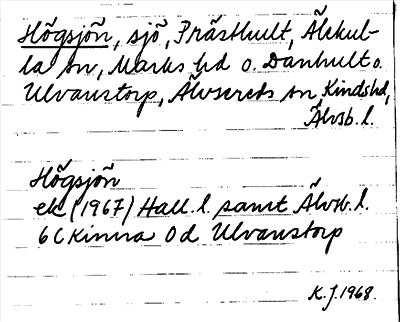 Högsjön, sjö, Prästhult, Älekul-
la sn, Marks hd o. Danhult o.
Ulvanstorp, Älvsereds sn, Kinds hd,
Älvsb. l.
Högsjön
ek (1967) Hall. l. samt Älvsb. l.
6 C Kinna 0 d Ulvanstorp
K. J. 1968.